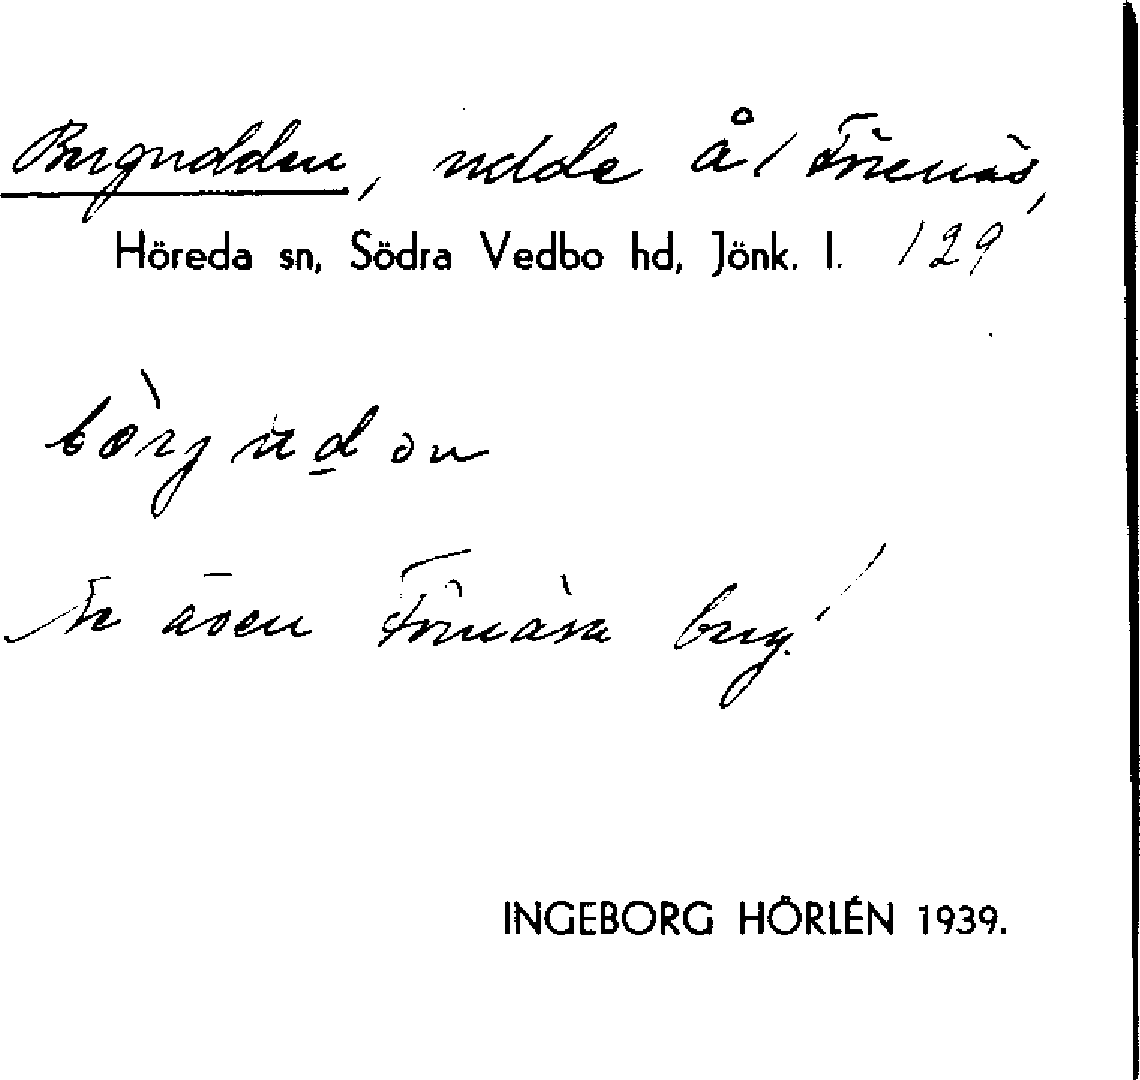 Bergudden, udde å/ Förenäs,
Höreda sn, Södra Vedbo hd, Jönk. l. 129
bòrjudən
Se även Förenäsa berg!
INGEBORG HÖRLÉN 1939.